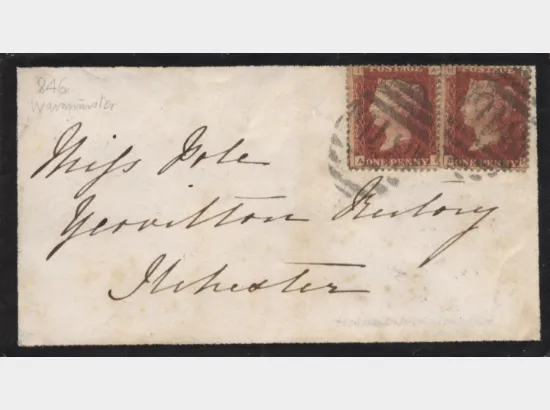 846
Warminster
POSTAGE POSTAGE
ONE PENNY ONE PENNY
Miss Pole
Yeovilton Rectory
Ilchester